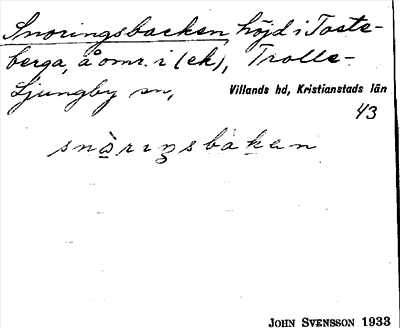 Snoringsbacken höjd i Toste-
berga, å omr. i (ek), Trolle-
Ljungby sn,
Villands hd, Kristianstads län
43
snòriŋsbakən
JOHN SVENSSON 1933